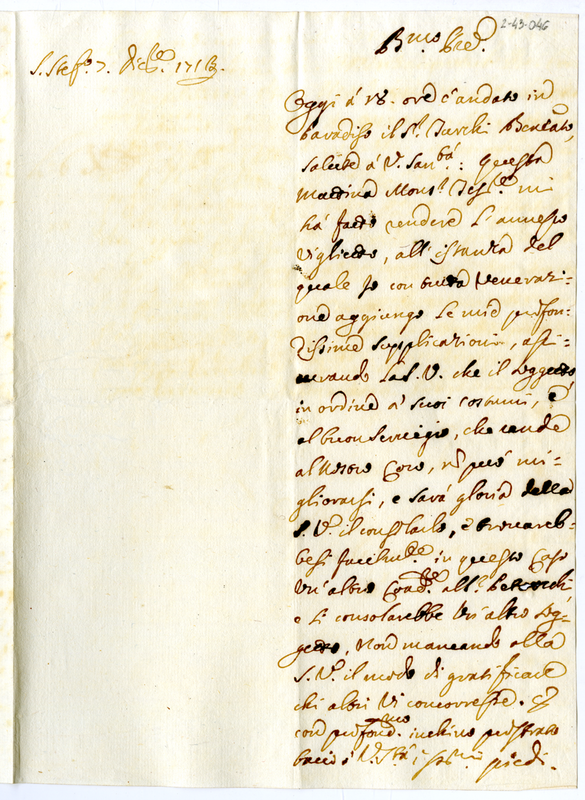 2-43-046
Bmo Pre.
S. Stefo 7. Dicbre 1713.
Oggi à 18. ore è andato in
Paradiso il Sr. Turchi Beneficiato,
salute à V. Santà: questa
mattina Monsr. Tesre mi
hà fatto rendere l'annesso
viglietto, all'istanza del
quale io con tutta Venerazi=
one aggiungo le mie profon=
dissime supplicazioni, asti=
curando la S. V. che il soggetto
in ordine à suoi costumi, è
al buon Servigio, che rende
al Nostro Coro, nõ può mi=
gliorarsi, e sarà gloria della
S. Va il consolarlo, è trovareb=
besi facilmte in questo Caso
Un'altro Coadre all'
e si consolarebbe Un'altro sog=
getto, Non mancando alla
S. Va il modo di gratificare
chi altri Vi concorresse. E
con profondmo inchino prostrato
bacio à Va Stà i Ssmi piedi.